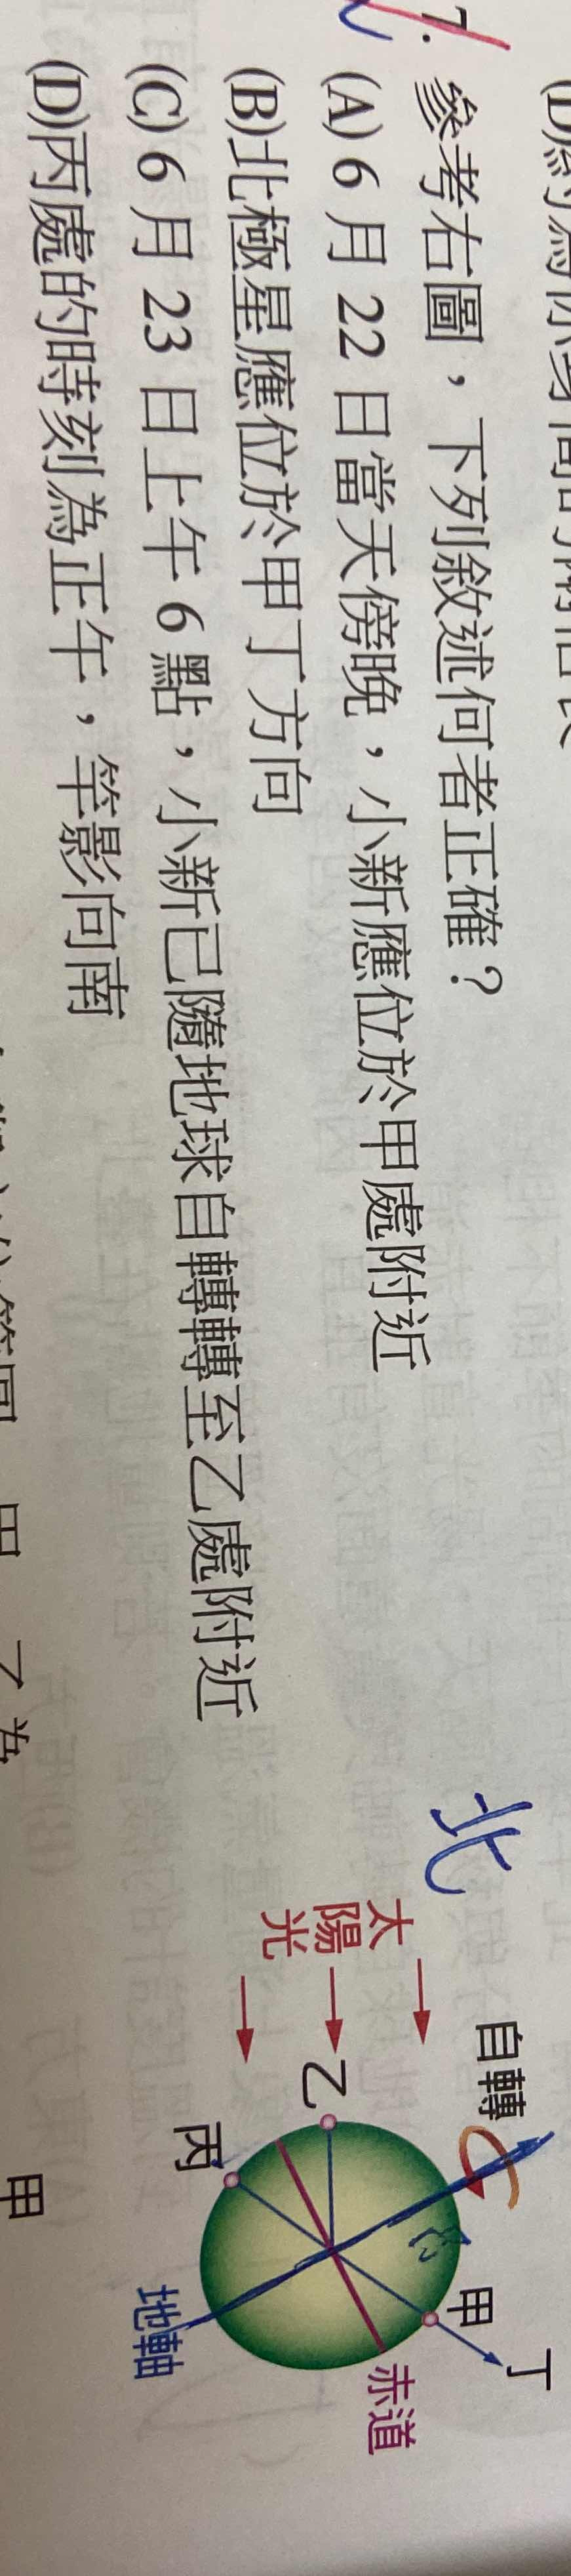 7. 參考右圖，下列敘述何者正確？
(A) 6 月 22 日當天傍晚，小新應位於甲處附近
(B)北極星應位於甲丁方向
(C) 6 月 23 日上午 6 點，小新已隨地球自轉轉至乙處附近
(D)丙處的時刻為正午，竿影向南
北
太陽光
自轉
乙
丙
甲
丁
赤道
地軸
甲